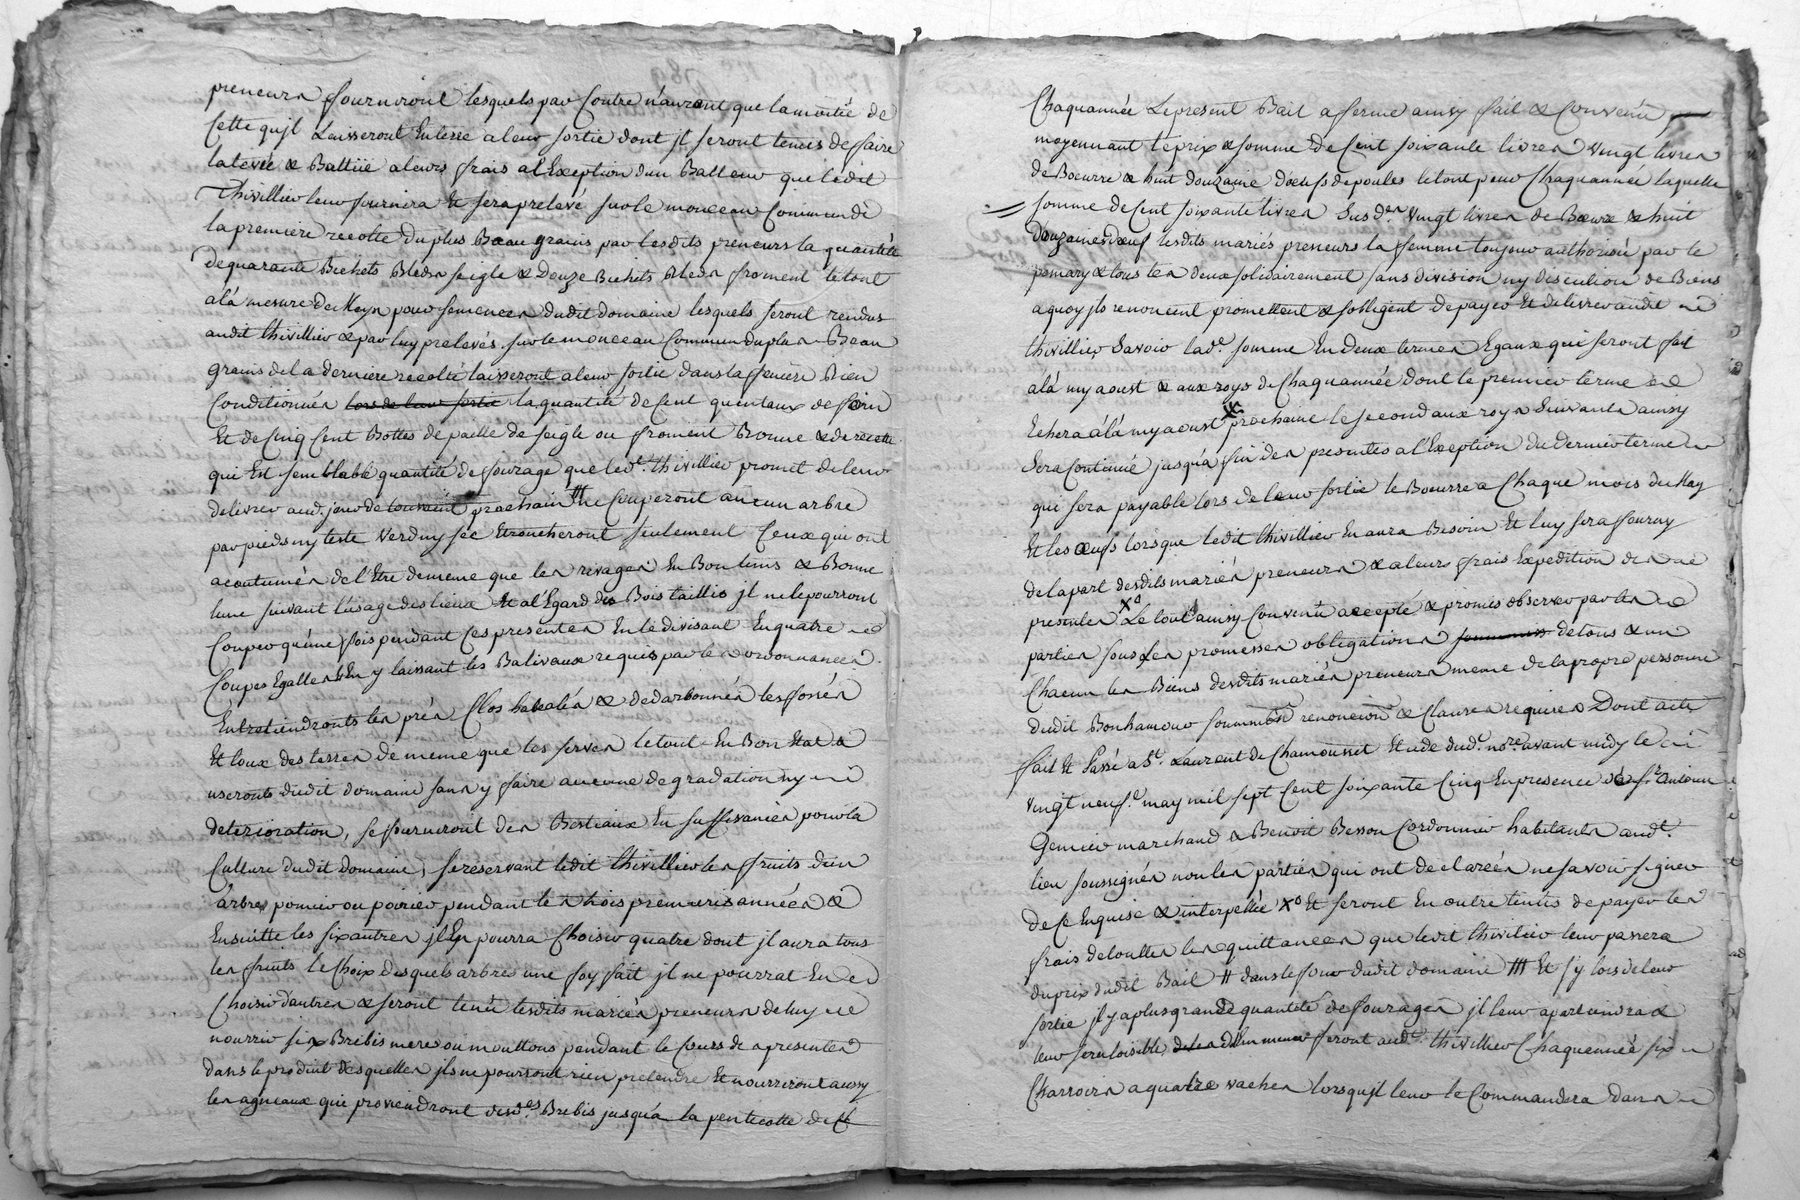 preneurs fourniront lesquels par Contre n'auront que la moitié de
Cette qu'jl Laisseront En terre a leur sortie dont jl seront tenus de faire
la levée & Battüe a leurs frais a l'Exeption d'un Batteur que ledit
Thivillier leur fournira Et sera prelevé sur le monceau Commun de
la premiere recolte du plus Beau grains par lesdits preneurs la quantité
de quarante Bichets Bleds seigle & Douze Bichets Bleds froment le tout
a la mesure de pour semences dudit domaine lesquels seront rendus
audit thivillier & par luy prelevés sur le monceau Commun du plus Beau
grains de la derniere recolte laisseront a leur sortie dans la feniere Bien
Conditionnés lors de leur sortie la quantité de Cent quentaux de foin
Et de Cinq Cent Bottes de paille de seigle ou froment Bonne & de recette
qui Est semblable quantité de fourage que led.t thivillier promet de leur
delivrer aud. jour de toussaint prochain ne Couperont aucun arbre
par pieds ny teste Verd ny sec Etrancheront seulement Ceux qui ont
acoutumés de l'Etre de meme que les rivages En Bon tems & Bonne
lune suivant l'usage des lieux Et a l'Egard des Bois taillis jl ne le pourront
Couper qu'une fois pendant Ces presentes En le divisant En quatre
Coupes Egalles & En y laissant les Balivaux requis par les ordonnances
Entretiendronts les prés Clos & dedarbonnés les fossés
Et toux des terres de meme que les serves le tout En Bon Etat &
useronts dudit domaine sans y faire aucune degradation ny
deterioration, se fourniront des Bestiaux En suffisances pour la
Culture dudit Domaine, se reservant ledit thivillier les fruits d'un
arbre pomier ou poirier pendant les trois premieres années &
Ensuitte les six autres jl En pourra Choisir quatre dont jl aura tous
les fruits le Choix desquels arbres une foy fait jl ne pourrat En
Choisir d'autres & seront tenu lesdits mariés preneurs de luy
nourrir six Brebis meres ou mouttons pendant le Cours de presentes
dans le produit desquelles jls ne pourront rien pretendre Et nourriront aussy
les agneaux qui proviendront desd.es Brebis jusqu'a la pentecotte de
Chaquannée Le present Bail a ferme ainsy fait & Convenu
moyennant le prix & somme de Cent soixante livres Vingt livres
de Boeurre & huit douzaine d'oeufs de poules le tout pour Chaquannée laquelle
somme de Cent soixante livres Susd.es Vingt livres de Boeure & huit
douzaines d'oeuf lesdits mariés preneurs la femme toujour authorisée par le
mary & tous les deux solidairement sans division ny discution de Biens
a quoy jls renoncent promettent & s'obligent de payer Et delivrer audit
thivillier Savoir lad.e somme En deux termes Egaux qui seront fait
a la my aoust & aux roys de Chaquannée dont le premier terme
Echera a la my aoust prochaine le second aux roys Suivants ainsy
Sera Continué jusqu'a fin des presentes a l'Exeption du dernier terme
qui sera payable lors de leur sortie le Boeurre a Chaque mois de May
Et les oeufs lorsque ledit thivillier En aura Besoin Et luy sera fourny
de la part desdits mariés preneurs & a leurs frais Expedition des
presentes Xo Le tout ainsy Convenu accepté & promis observer par les
parties sous Les promesses obligations de tous & un
Chacun les Biens desdits mariés preneurs meme de la propre personne
dudit Bonhamour soummission renonciõn & Clauses requises Dont acte
fait Et Passé a St Laurent de Chamousset Etude dud. no.re avant midy le
Vingt neuf.e may mil sept Cent soixante Cinq En presence de Sr. antoine
Genier marchand & Benoit Besson Cordonnier habitants aud.t
lieu soussignés non les parties qui ont declarées ne savoir signer
de Ce Enquise & interpellée Xo Et seront En outre tenus de payer les
frais de toutes les quittances que ledit thivillier leur passera
du prix dudit Bail # dans le four dudit domaine ### Et s'y lors de leur
sortie jl y a plus grande quantité de fourages jl leur apartiendra &
leur sera loisible de meme feront aud.t thivillier Chaquannée six
Charroirs a quatre vaches lorsqu'jl leur le Commandera dans